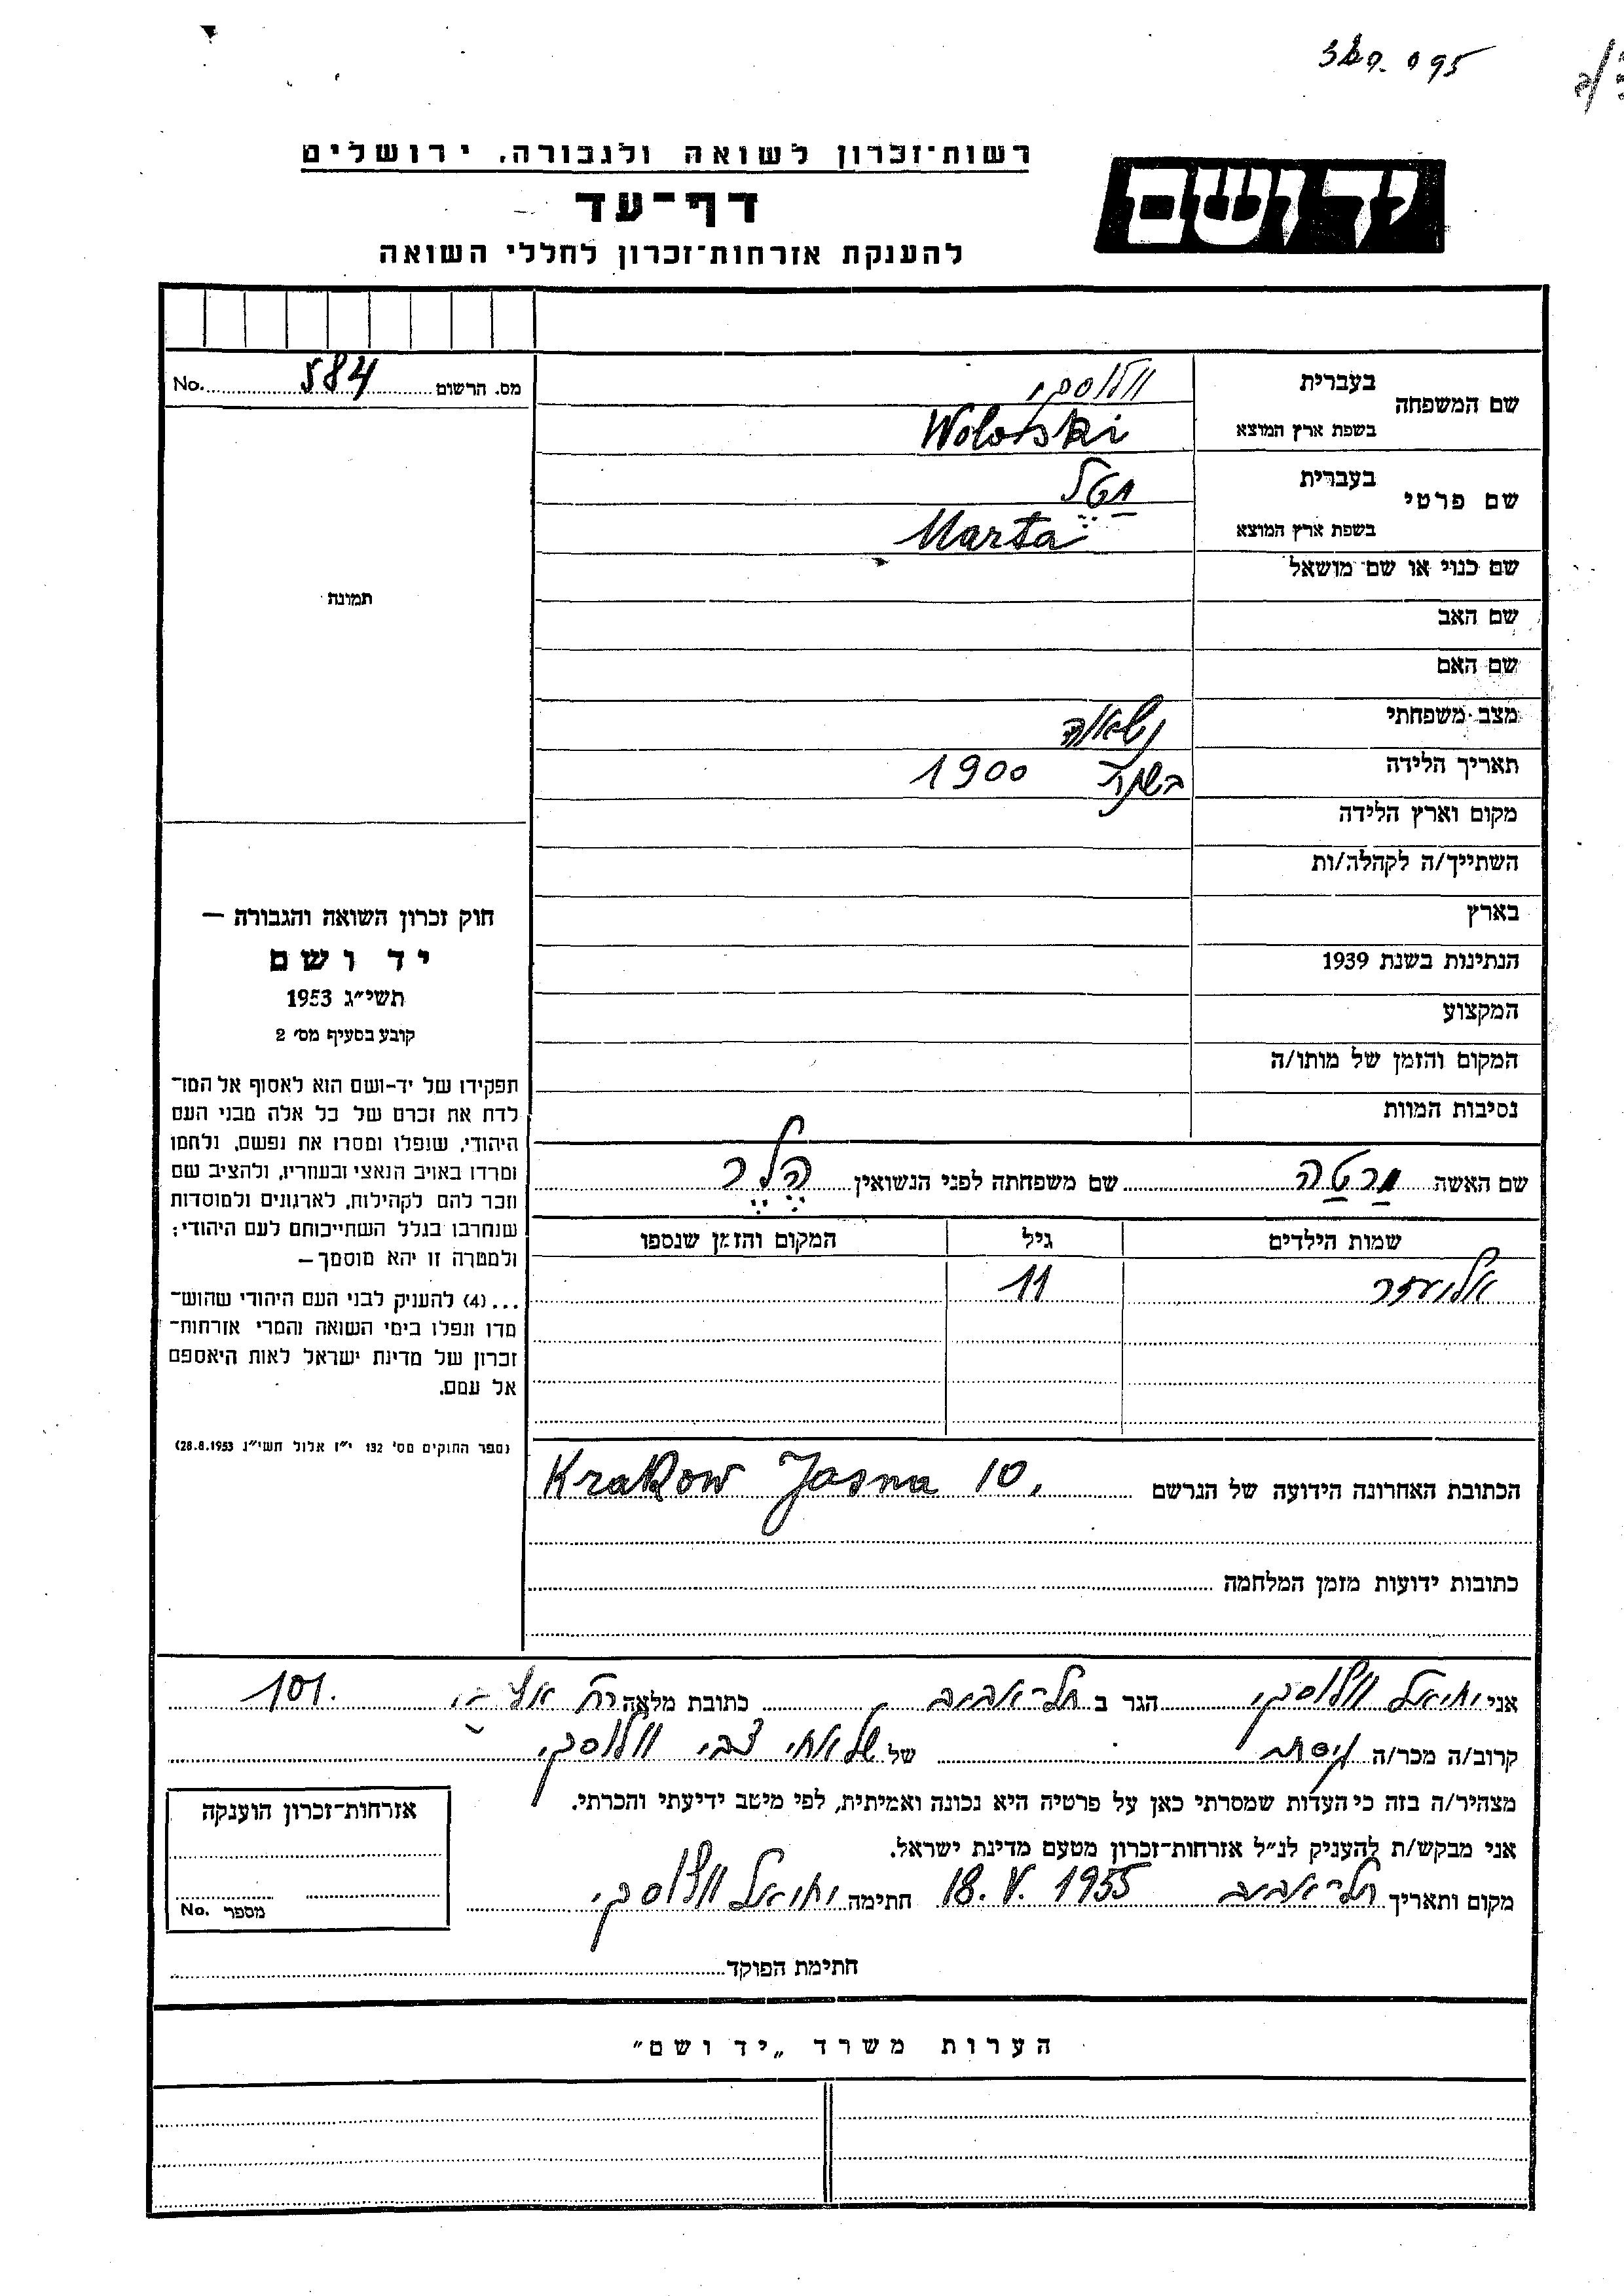 רשות־זכרון לשואה ולגבורה, ירושלים
יד ושם
דף־עד
להענקת אזרחות־זכרון לחללי השואה
שם המשפחה בעברית וולוסקי
בשפת ארץ המוצא Woloski
שם פרטי בעברית
בשפת ארץ המוצא Marta
שם כנוי או שם מושאל
שם האב
שם האם
מצב משפחתי נשואה
תאריך הלידה בשנת 1900
מקום וארץ הלידה
השתייך/ה לקהלה/ות
בארץ
הנתינות בשנת 1939
המקצוע
המקום והזמן של מותו/ה
נסיבות המוות
מס. הרשום 584 No.
תמונה
חוק זכרון השואה והגבורה —
יד ושם
תשי״ג 1953
קובע בסעיף מס׳ 2
תפקידו של יד-ושם הוא לאסוף אל המו־
לדת את זכרם של כל אלה מבני העם
היהודי, שנפלו ומסרו את נפשם, נלחמו
ומרדו באויב הנאצי ובעוזריו, ולהציב שם
וזכר להם לקהילות, לארגונים ולמוסדות
שנחרבו בגלל השתייכותם לעם היהודי;
ולמטרה זו יהא מוסמך—
...(4) להעניק לבני העם היהודי שהוש־
מדו ונפלו בימי השואה והמרי אזרחות־
זכרון של מדינת ישראל לאות היאספם
אל עמם.
(ספר החוקים מס׳ 132 י״ז אלול תשי״ג 28.8.1953)
שם האשה מרטה שם משפחתה לפני הנשואין הלר
שמות הילדים גיל המקום והזמן שנספו
אליעזר 11
הכתובת האחרונה הידועה של הנרשם Krakow Jasna 10.
כתובות ידועות מזמן המלחמה
אני יחיאל וולוסקי הגר ב תל־אביב כתובת מלאה רח 101.
קרוב/ה מכר/ה גיסה של של אחי צבי וולוסקי
מצהיר/ה בזה כי העדות שמסרתי כאן על פרטיה היא נכונה ואמיתית, לפי מיטב ידיעתי והכרתי.
אני מבקש/ת להעניק לנ״ל אזרחות־זכרון מטעם מדינת ישראל.
מקום ותאריך תל־אביב 18. V. 1955 חתימה יחיאל וולוסקי
חתימת הפוקד
אזרחות־זכרון הוענקה
מספר No.
הערות משרד „יד ושם״